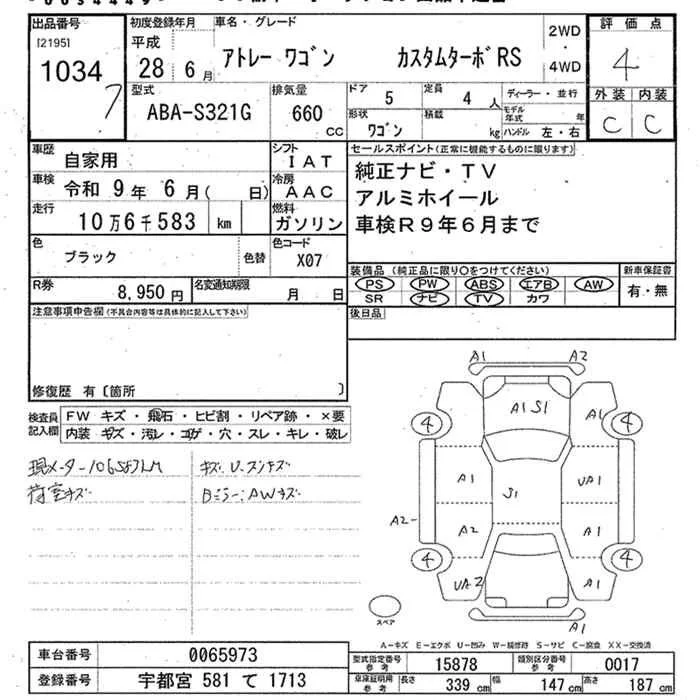 出品番号
[2195]
1034
7
初度登録年月
平成
28 年 6 月
車名・グレード
アトレー ワゴン カスタムターボRS
2WD
・
4WD
評価点
4
外装 内装
C C
型式
ABA-S321G
排気量
660 CC
ドア
5
定員
4 人
ディーラー・並行
形状
ワゴン
積載
kg
モデル年式 年
ハンドル 左・右
車歴
自家用
シフト
IAT
車検
令和 9年 6月( 日)
冷房
AAC
走行
10万6千583 km
燃料
ガソリン
色
ブラック
色替
色コード
X07
R券
8,950 円
名変通知期限
月 日
セールスポイント(正常に機能するものに限ります)
純正ナビ・TV
アルミホイール
車検R9年6月まで
装備品 (純正品に限り〇をつけてください)
新車保証書
PS PW ABS エアB AW
SR ナビ TV カワ
有・無
後日品
注意事項申告欄(不具合内容等は具体的に記入して下さい)
修復歴 有〔箇所 〕
検査員記入欄
FW キズ・飛石・ヒビ割・リペア跡・×要
内装 キズ・汚レ・コゲ・穴・スレ・キレ・破レ
現メーター106587KM
荷室キズ
キズ.U.スジキズ
Bミラー:AWキズ
A1 A2
4 A1S1 A1 4
A1 S1 UA1
A2 A2 A1
4 UA2 A1 4
A1
スペア
A-キズ E-エクボ U-凹み W-補修跡 S-サビ C-腐食 XX-交換済
車台番号
0065973
登録番号
宇都宮 581 て 1713
型式指定番号 参考
15878
類別区分番号 参考
0017
車庫証明用 参考
長さ 339 cm
幅 147 cm
高さ 187 cm